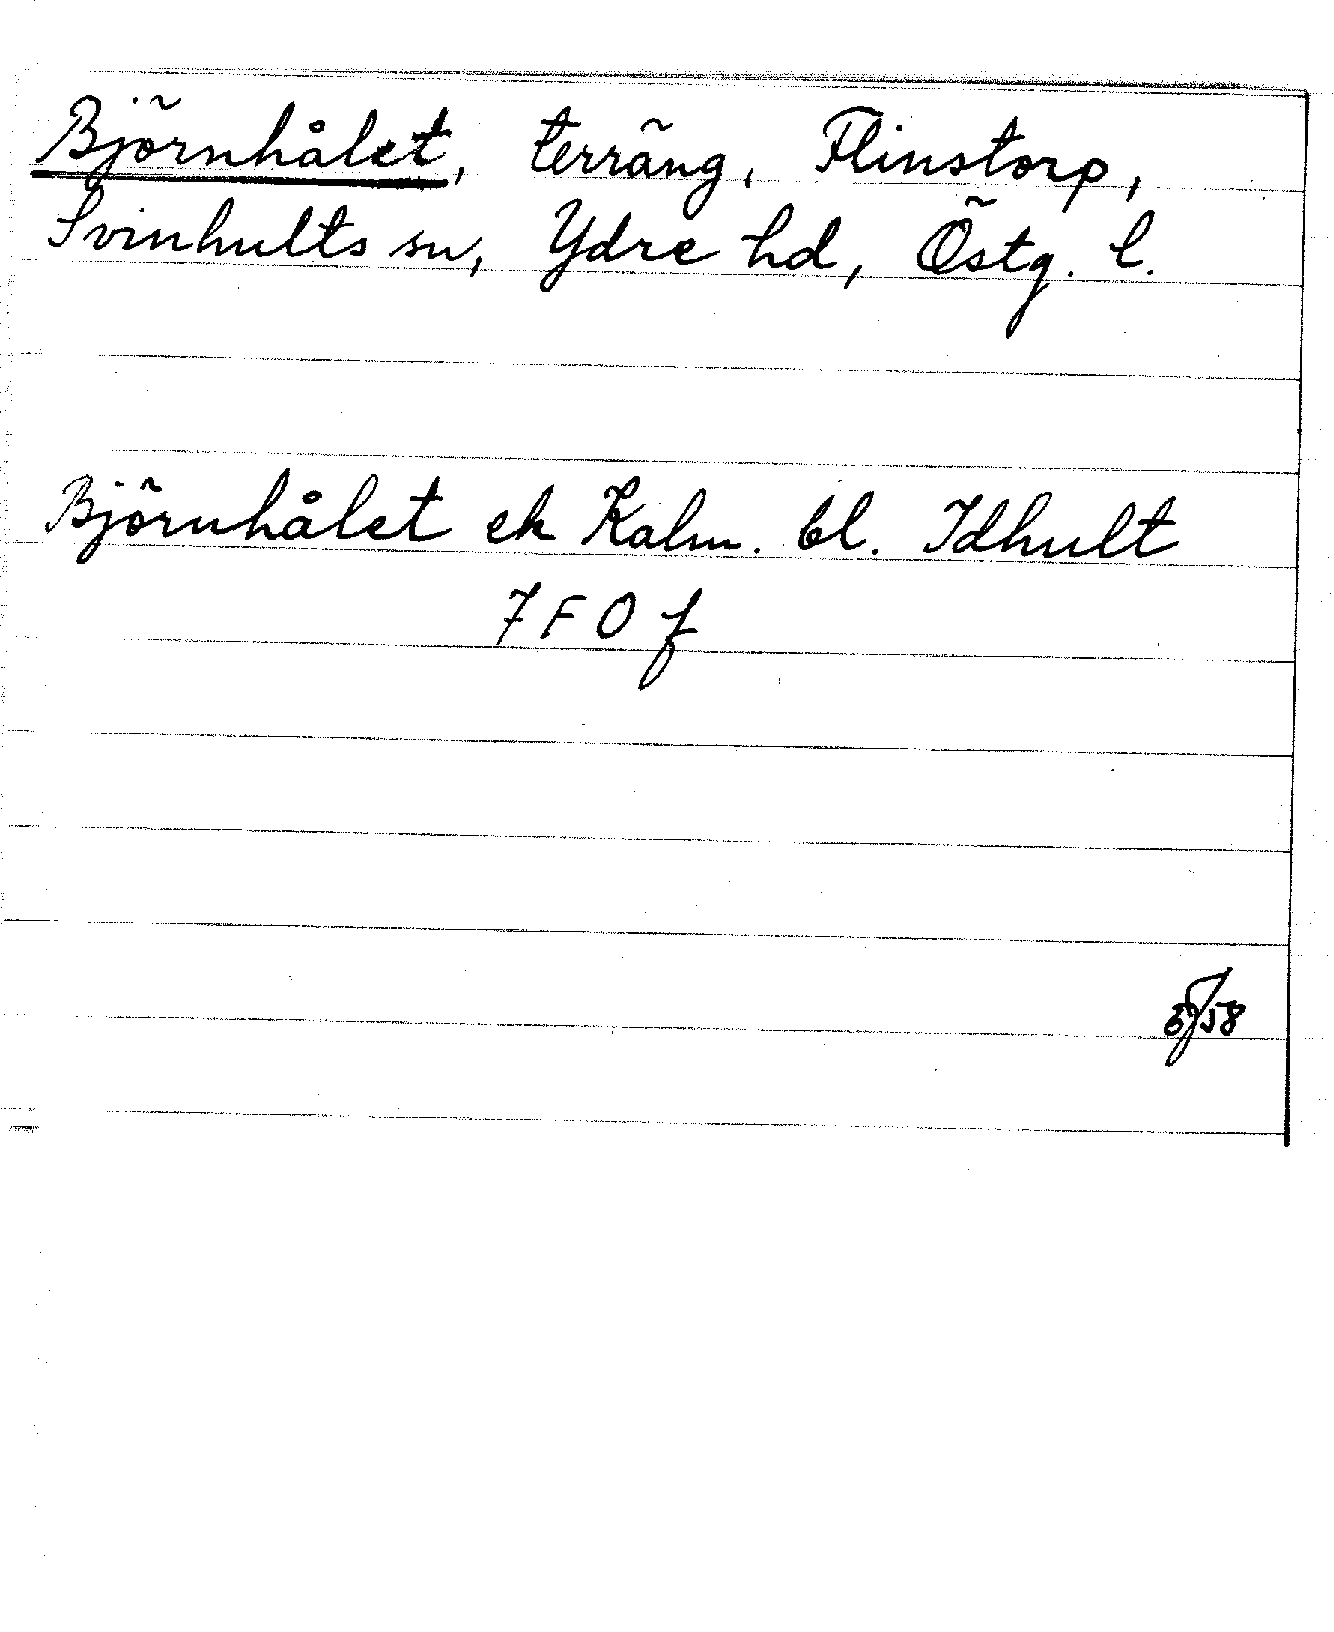 Björnhålet, terräng, Flinstorp,
Svinhults sn, Ydre hd, Östg. l.
Björnhålet ek Kalm. bl. Idhult
7 F O f